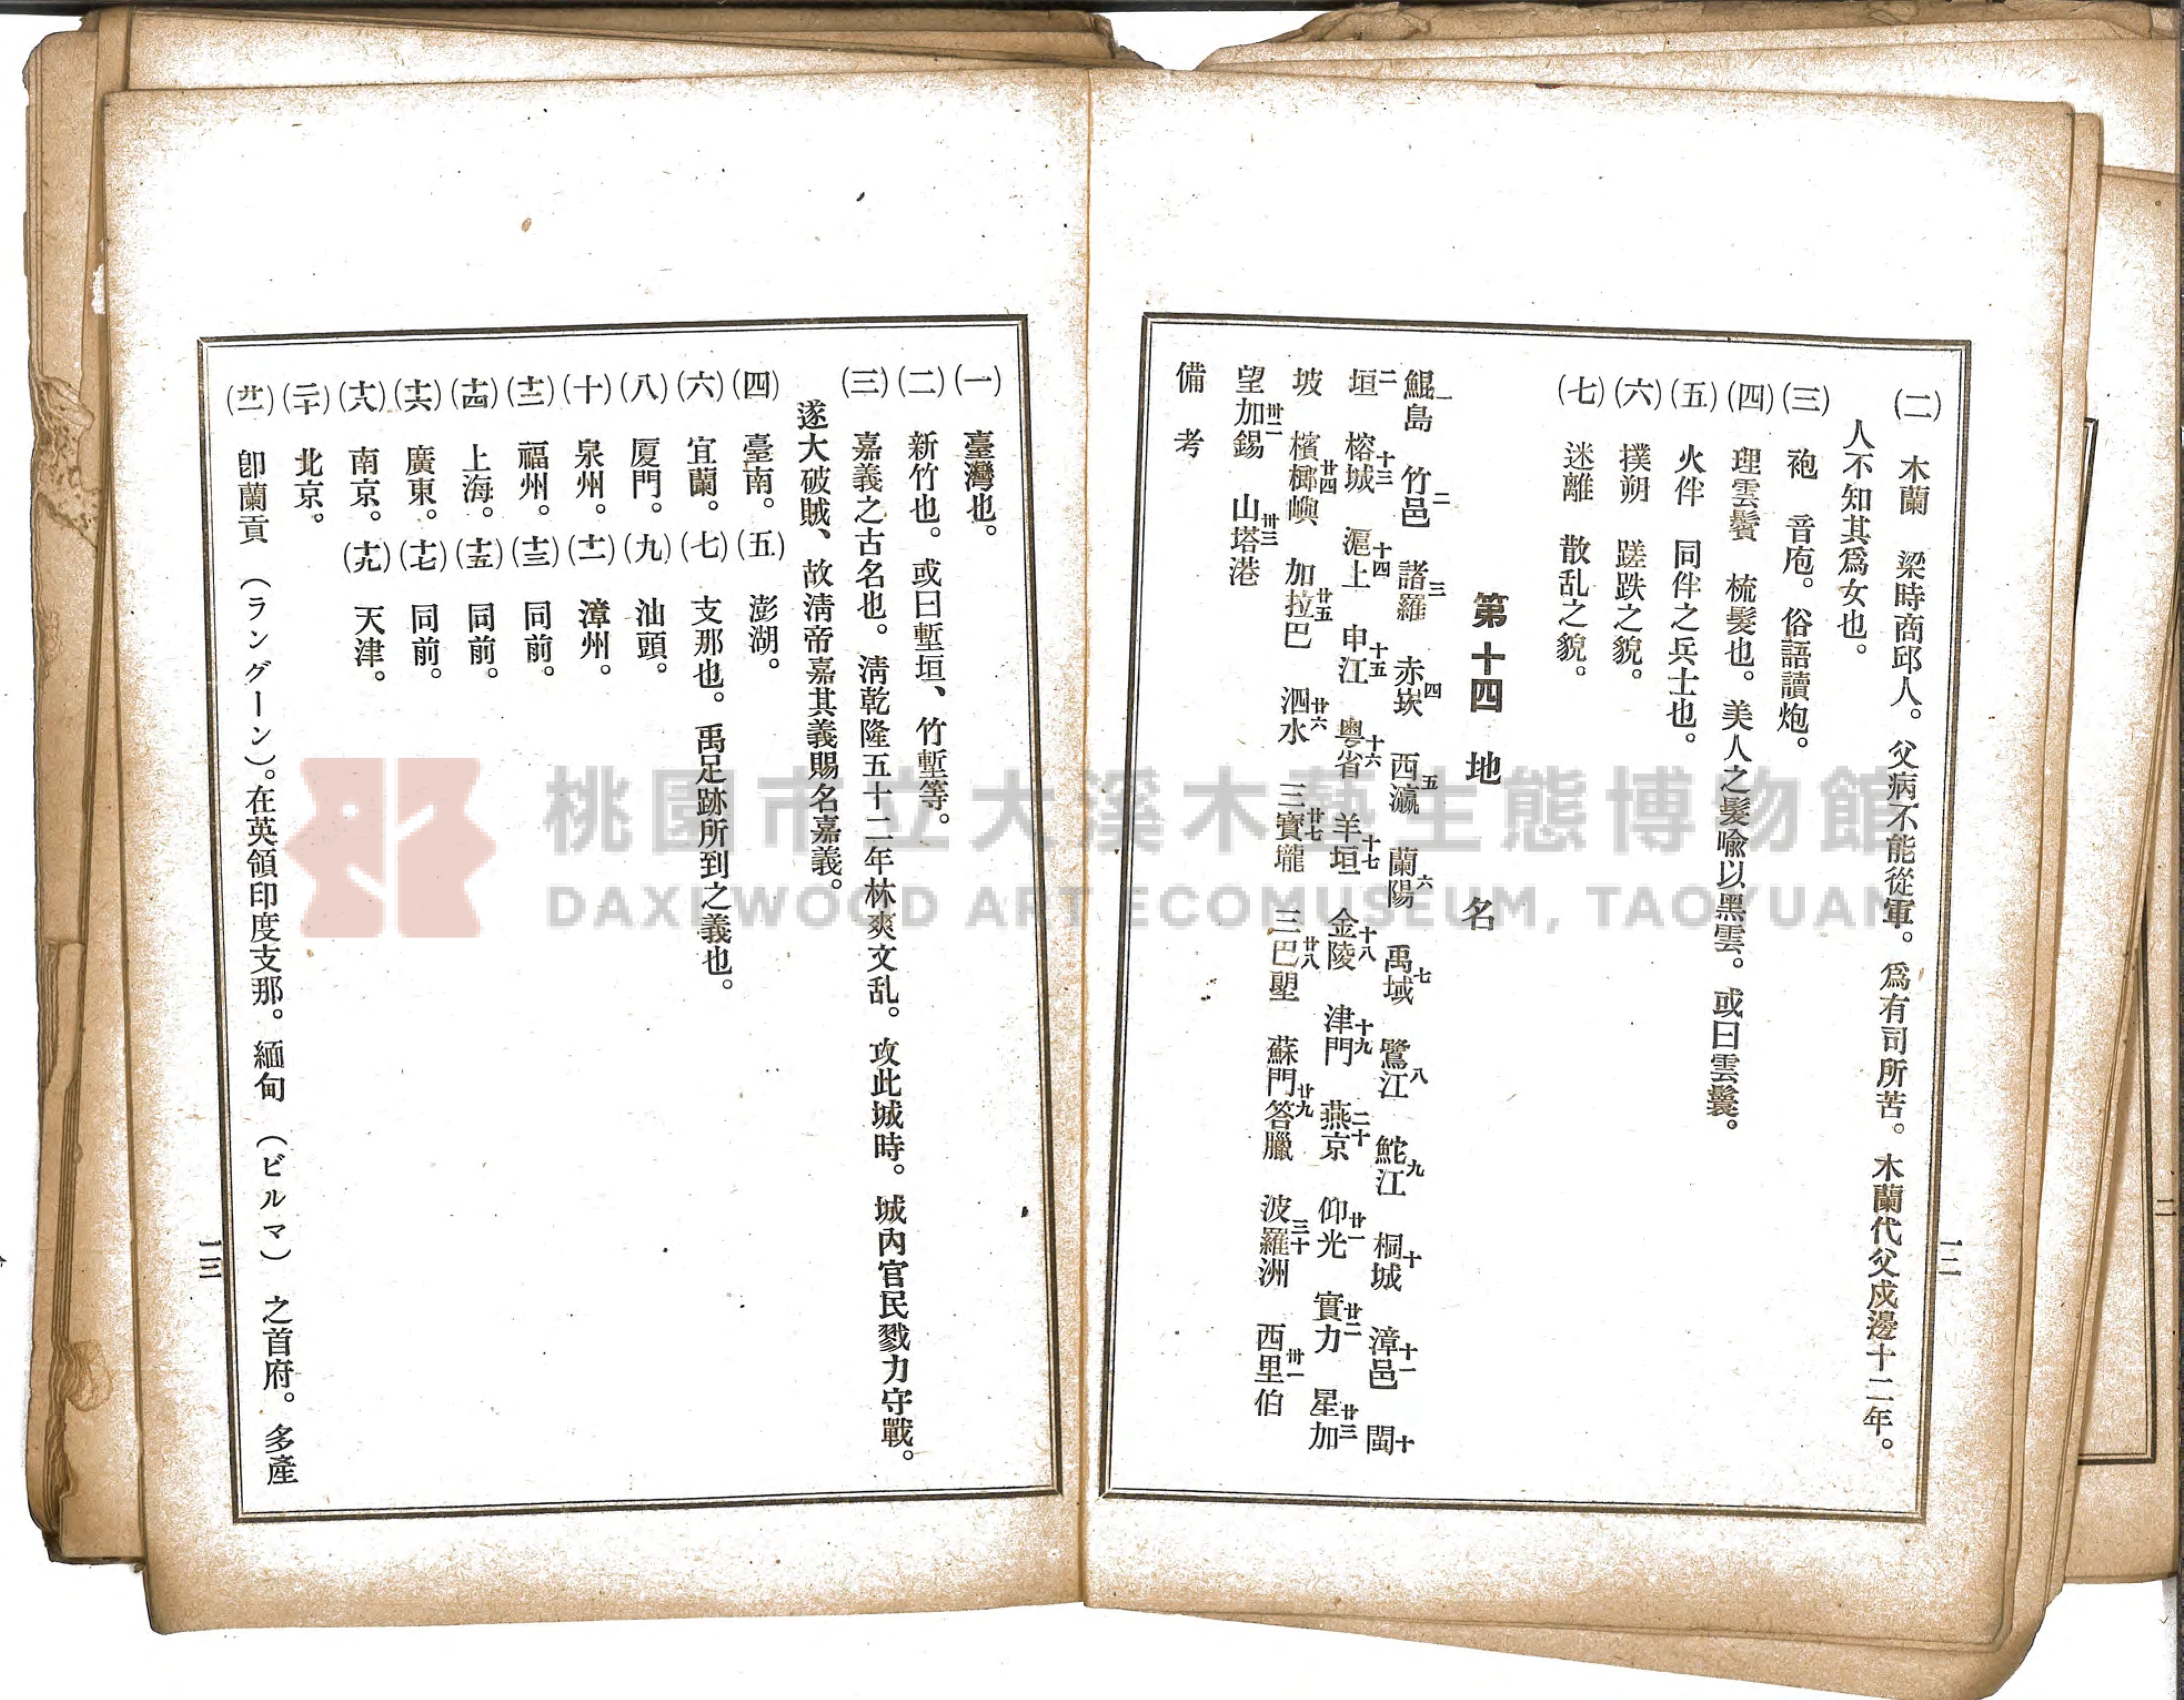 (二)　木蘭　梁時商邱人。父病不能從軍。爲有司所苦。木蘭代父戍邊十二年。
人不知其爲女也。
(三)　袍　音庖。俗語讀炮。
(四)　理雲鬢　梳髮也。美人之髮喩以黑雲。或曰雲鬟。
(五)　火伴　同伴之兵士也。
(六)　撲朔　蹉跌之貌。
(七)　迷離　散乱之貌。
第十四　地　名
鯤島一　竹邑二　諸羅三　赤崁四　西瀛五　蘭陽六　禹域七　鷺江八　鮀江九　桐城十　漳邑十一　閩十
垣二　榕城十三　滬上十四　申江十五　粤省十六　羊垣十七　金陵十八　津門十九　燕京二十　仰光廿一　實力廿二　星加廿三
坡　檳榔嶼廿四　加拉巴廿五　泗水廿六　三寶壠廿七　三巴壟廿八　蘇門答臘廿九　波羅洲三十　西里伯卅一
望加錫卅二　山塔港卅三
備　考
一二
(一)　臺灣也。
(二)　新竹也。或曰塹垣、竹塹等。
(三)　嘉義之古名也。淸乾隆五十二年林爽文乱。攻此城時。城內官民戮力守戰。
遂大破賊、故淸帝嘉其義賜名嘉義。
(四)　臺南。(五)　澎湖。
(六)　宜蘭。(七)　支那也。禹足跡所到之義也。
(八)　厦門。(九)　汕頭。
(十)　泉州。(十一)　漳州。
(十二)　福州。(十三)　同前。
(十四)　上海。(十五)　同前。
(十六)　廣東。(十七)　同前。
(十八)　南京。(十九)　天津。
(二十)　北京。
(廿一)　卽蘭貢　(ラングーン)。在英領印度支那。緬甸　(ビルマ)　之首府。多產
一三
桃園市立大溪木藝生態博物館
DAXI WOOD ART ECOMUSEUM, TAOYUAN